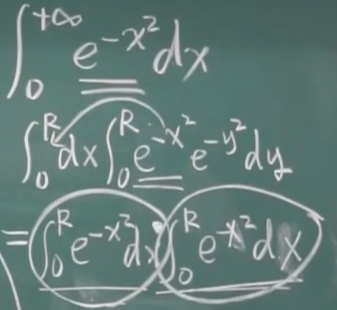 ∫₀^{+∞} e^{-x²} dx
∫₀^R dx ∫₀^R e^{-x²} e^{-y²} dy
= (∫₀^R e^{-x²} dx)(∫₀^R e^{-x²} dx)